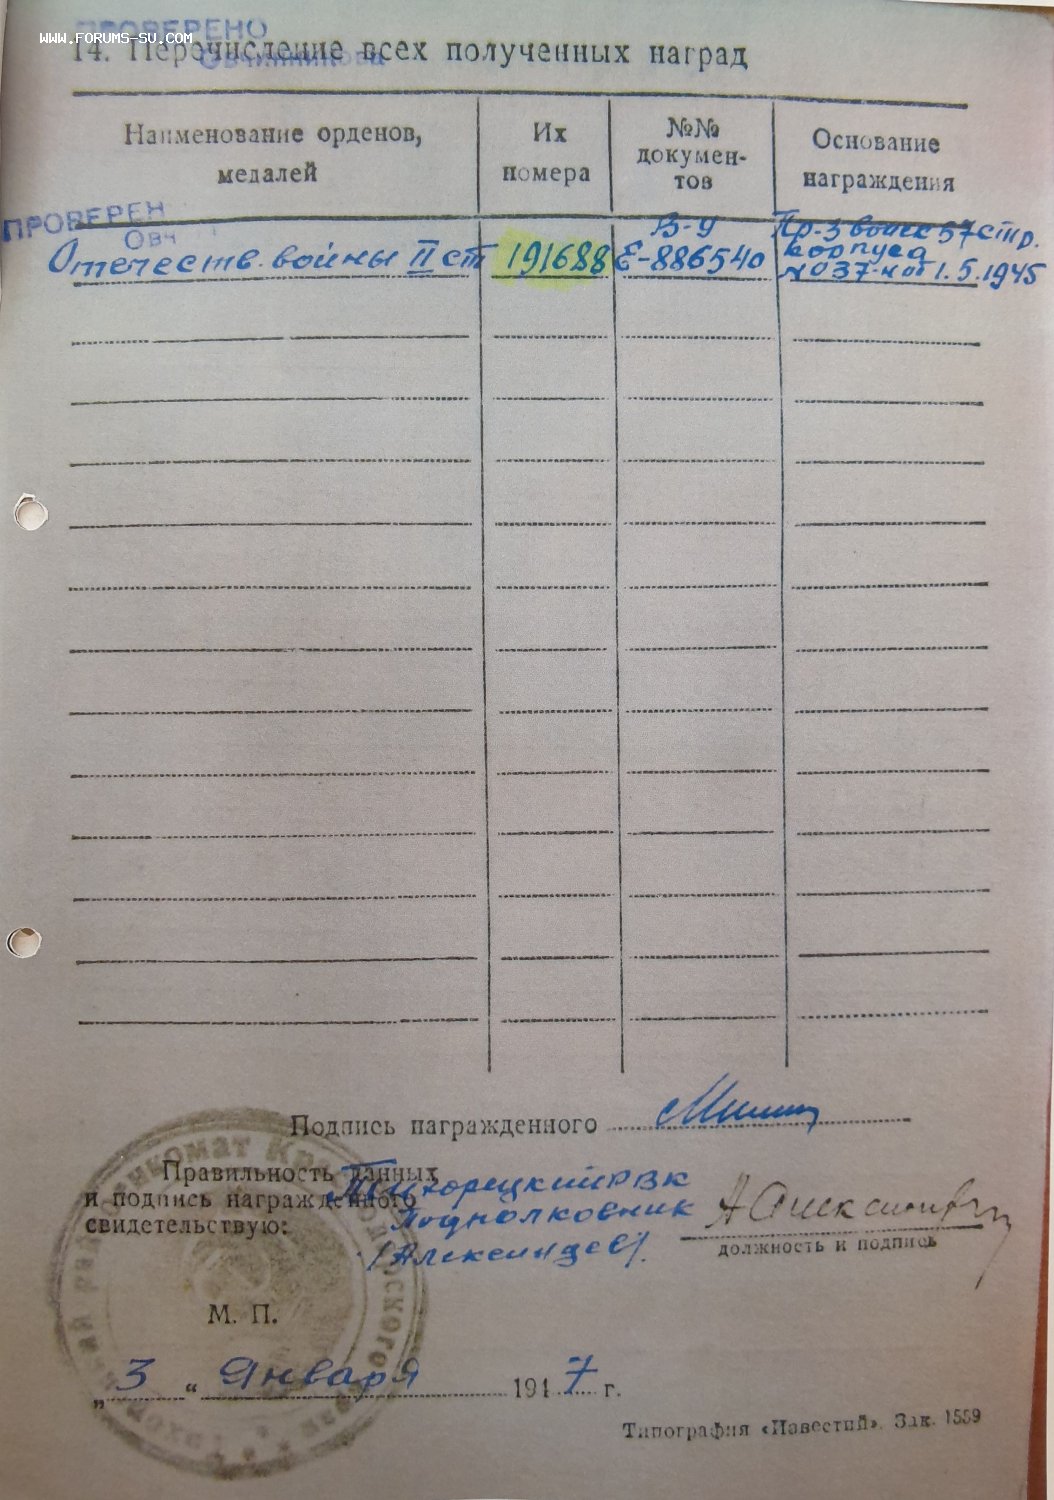 ПРОВЕРЕНО
www.forums-su.com
Овчинникова
14. Перечисление всех полученных наград
Наименование орденов, медалей
Их номера
№№ документов
Основание награждения
ПРОВЕРЕН
Овч
Отечеств. войны II ст
191688
В-9
Е-886540
Пр-з войск 57 стр.
корпуса
№ 037-н от 1.5.1945
Подпись награжденного
Правильность данных
и подпись награжденного
свидетельствую:
Тихорецкий РВК
Подполковник
/Александров/.
должность и подпись
М. П.
„ 3 “ Января 1947 г.
Типография «Известий». Зак. 1559